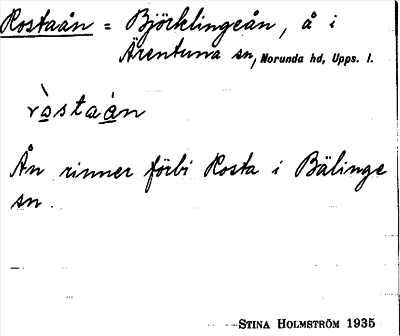 Rostaån = Björklingeån, å i
Ärentuna sn, Norunda hd, Upps. l.
ròstaàn
Ån rinner förbi Rosta i Bälinge
sn.
STINA HOLMSTRÖM 1935